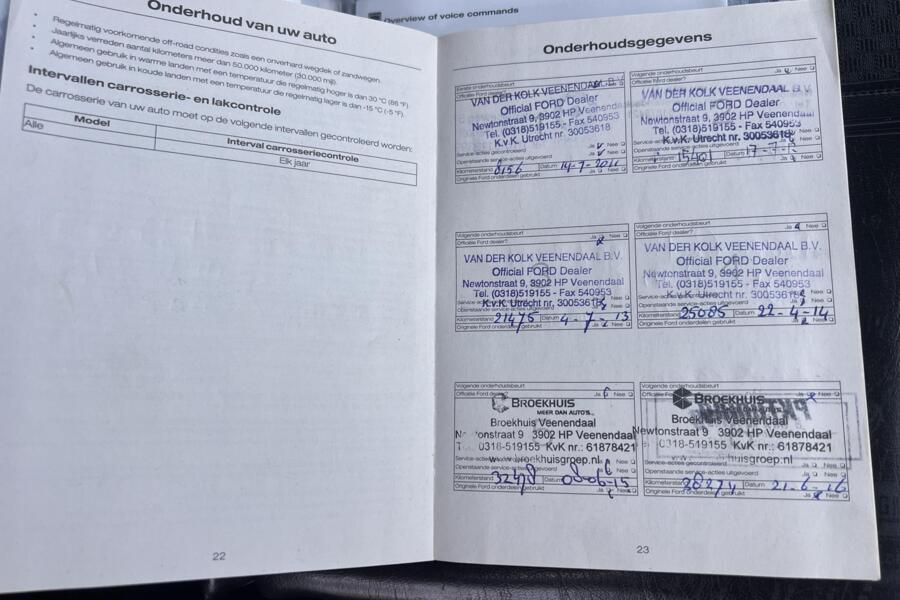 overview of voice commands
Onderhoud van uw auto
• Regelmatig voorkomende off-road condities zoals een onverhard wegdek of zandwegen.
• Jaarlijks verreden aantal kilometers meer dan 50.000 kilometer (30.000 mijl).
• Algemeen gebruik in warme landen met een temperatuur die regelmatig hoger is dan 30 °C (86 °F).
• Algemeen gebruik in koude landen met een temperatuur die regelmatig lager is dan -15 °C (-5 °F).
Intervallen carrosserie- en lakcontrole
De carrosserie van uw auto moet op de volgende intervallen gecontroleerd worden:
Model
Interval carrosseriecontrole
Alle
Elk jaar
22
Onderhoudsgegevens
Eerste onderhoudsbeurt
Officiële Ford dealer?
VAN DER KOLK VEENENDAAL B.V.
Official FORD Dealer
Newtonstraat 9, 3902 HP Veenendaal
Tel. (0318)519155 - Fax 540953
K.v.K. Utrecht nr. 30053618
Service-acties gecontroleerd Ja Nee
Openstaande service-acties uitgevoerd Ja Nee
Kilometerstand 8156 Datum 14-7-2011
Originele Ford onderdelen gebruikt Ja Nee
Volgende onderhoudsbeurt
Officiële Ford dealer? Ja Nee
VAN DER KOLK VEENENDAAL B.V.
Official FORD Dealer
Newtonstraat 9, 3902 HP Veenendaal
Tel. (0318)519155 - Fax 540953
K.v.K. Utrecht nr. 30053618
Openstaande service-acties uitgevoerd Nee
Kilometerstand 15401 Datum 17-7-
Originele Ford onderdelen gebruikt Ja Nee
Volgende onderhoudsbeurt
Officiële Ford dealer? Ja Nee
VAN DER KOLK VEENENDAAL B.V.
Official FORD Dealer
Newtonstraat 9, 3902 HP Veenendaal
Tel. (0318)519155 - Fax 540953
K.v.K. Utrecht nr. 30053618
Openstaande service-acties uitgevoerd Nee
Kilometerstand 21475 Datum 4-7-13
Originele Ford onderdelen gebruikt Ja Nee
Volgende onderhoudsbeurt
Officiële Ford dealer? Ja Nee
VAN DER KOLK VEENENDAAL B.V.
Official FORD Dealer
Newtonstraat 9, 3902 HP Veenendaal
Tel. (0318)519155 - Fax 540953
K.v.K. Utrecht nr. 30053618
Openstaande service-acties uitgevoerd Nee
Kilometerstand 25085 Datum 22-4-14
Originele Ford onderdelen gebruikt Ja Nee
Volgende onderhoudsbeurt
Officiële Ford Ja Nee
BROEKHUIS
MEER DAN AUTO'S...
Broekhuis Veenendaal
Newtonstraat 9 3902 HP Veenendaal
0318-519155 KvK nr.: 61878421
www.broekhuisgroep.nl
Service-acties gecontroleerd Ja Nee
Openstaande service-acties uitgevoerd Nee
Kilometerstand Datum 08-06-15
Originele Ford onderdelen gebruikt Ja Nee
Volgende onderhoudsbeurt
Officiële Ford Nee
BROEKHUIS
MEER DAN AUTO'S...
Broekhuis Veenendaal
Newtonstraat 9 3902 HP Veenendaal
0318-519155 KvK nr.: 61878421
www.broekhuisgroep.nl
Service-acties gecontroleerd Ja Nee
Openstaande service-acties uitgevoerd Ja Nee
Kilometerstand Datum 21-6-16
Originele Ford onderdelen gebruikt Ja Nee
23